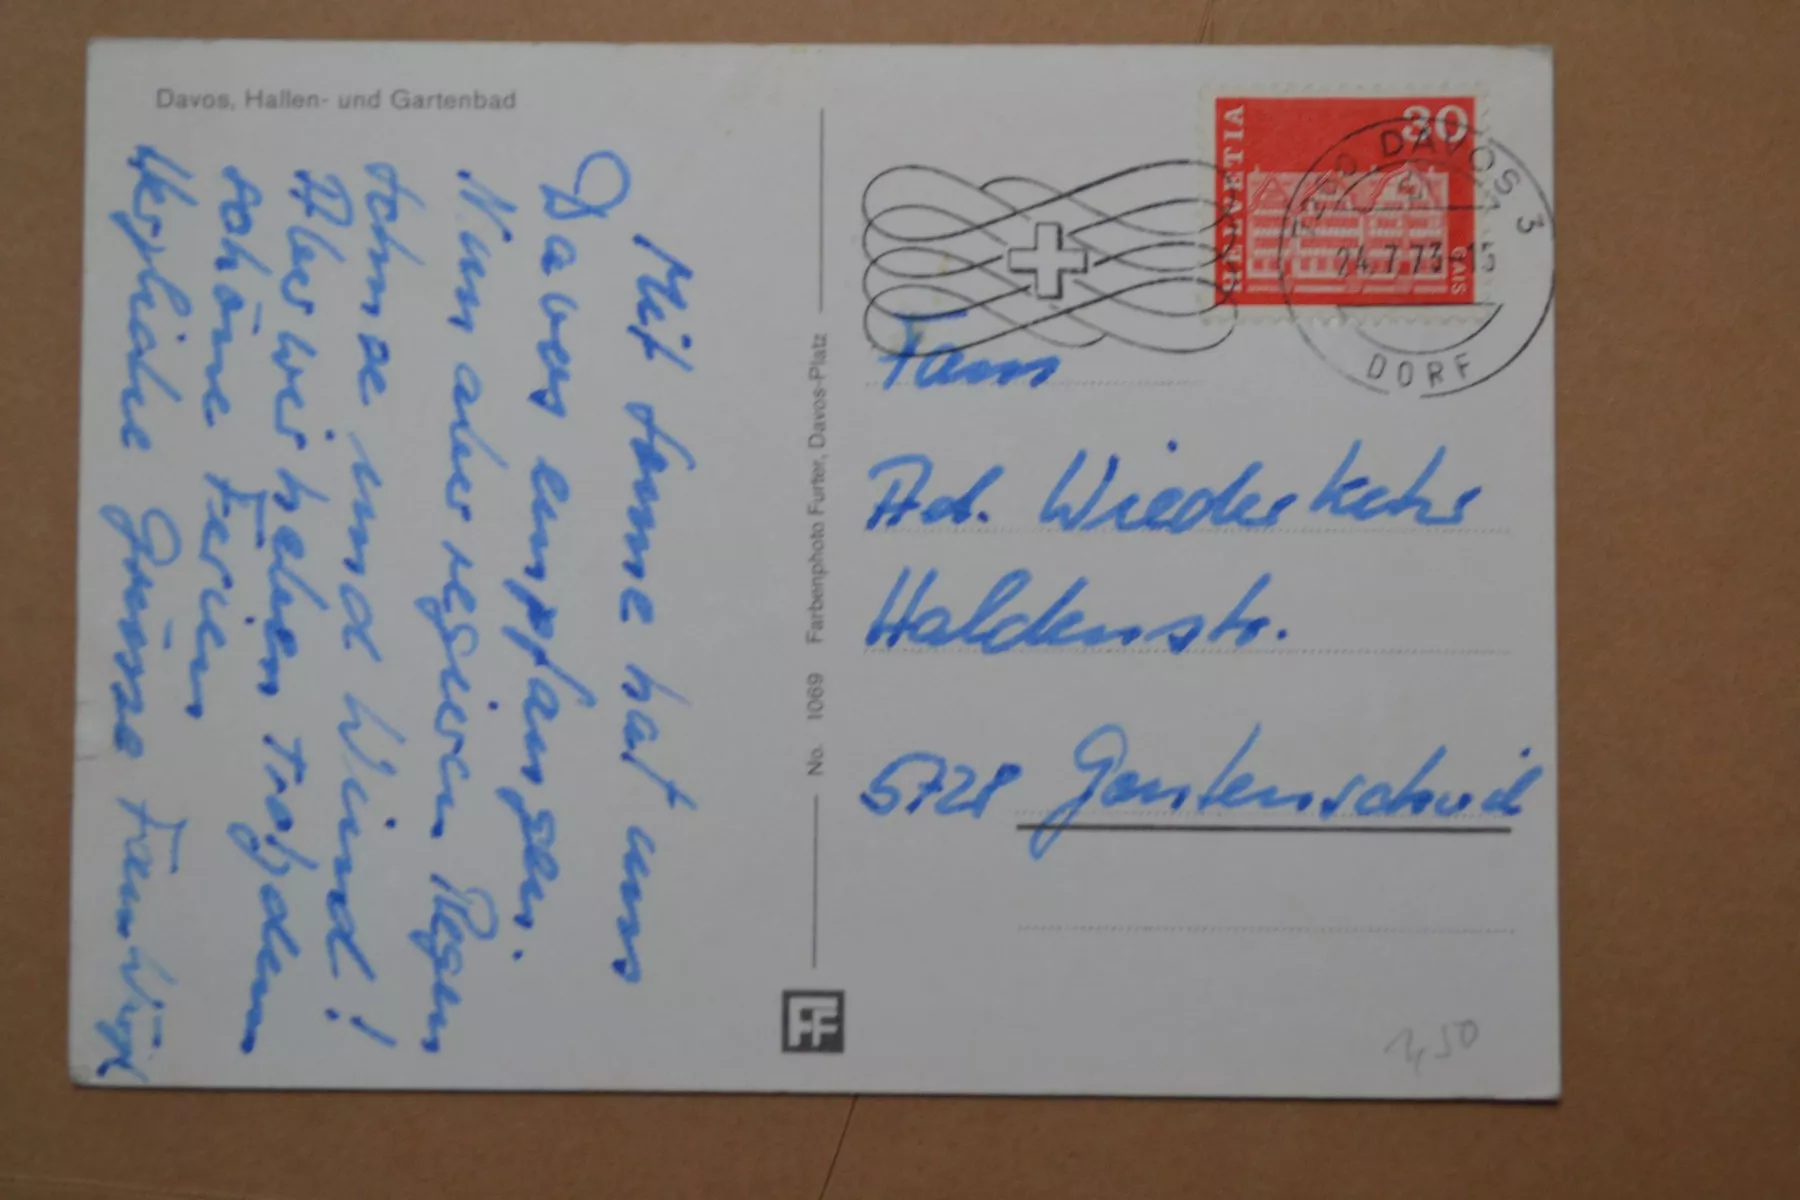 Davos, Hallen- und Gartenbad
Mit Sonne hat uns
Davos empfangen.
Nun aber regieren Regen
Schnee und Wind!
Aber wir haben trotzdem
schöne Ferien
Herzliche Grüsse Fam
No. 1069 Farbenphoto Furter, Davos-Platz
HELVETIA
30
GAIS
DAVOS 3
24.7.73-15
DORF
Fam
Ad. Wiederkehr
Haldenstr.
5728 Gontenschwil